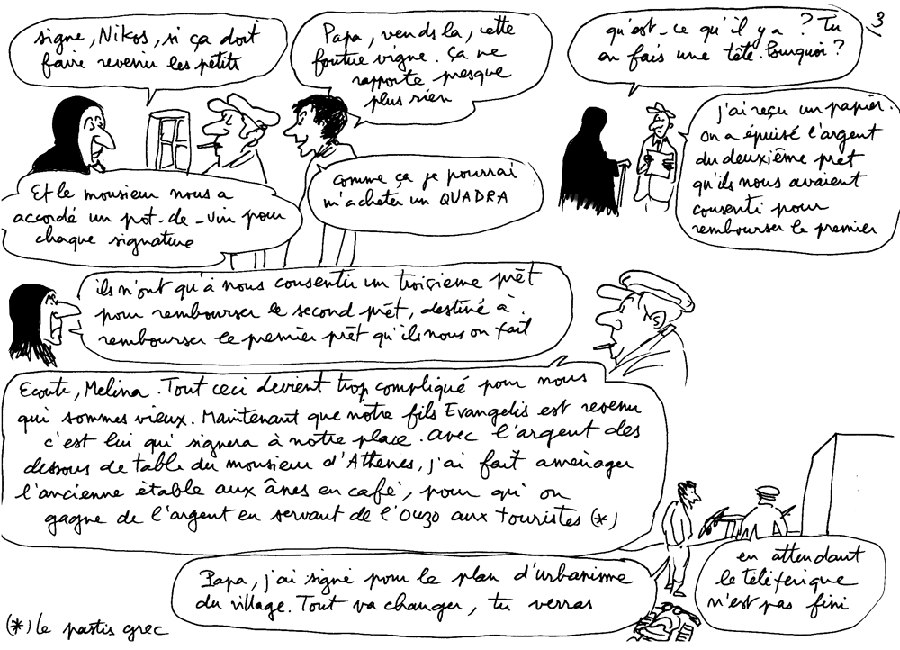 3
signe, Nikos, si ça doit
faire revenir les petits
Papa, vends la, cette
foutue vigne. ça ne
rapporte presque
plus rien
Et le monsieur nous a
accordé un pot-de-vin pour
chaque signature
comme ça je pourrai
m'acheter un QUADRA
qu'est-ce qu'il y a ? Tu
en fais une tête. Pourquoi ?
j'ai reçu un papier.
on a épuisé l'argent
du deuxième prêt
qu'ils nous avaient
consenti pour
rembourser le premier
ils n'ont qu'à nous consentir un troisième prêt
pour rembourser le second prêt, destiné à
rembourser le premier prêt qu'ils nous on fait
Ecoute, Melina. Tout ceci devient trop compliqué pour nous
qui sommes vieux. Maintenant que notre fils Evangelis est revenu
c'est lui qui signera à notre place. avec l'argent des
dessous de table du monsieur d'Athenes, j'ai fait aménager
l'ancienne étable aux ânes en café, pour qu'on
gagne de l'argent en servant de l'Ouzo aux touristes (*)
Papa, j'ai signé pour le plan d'urbanisme
du village. Tout va changer, tu verras
en attendant
le téléferique
n'est pas fini
(*) le pastis grec